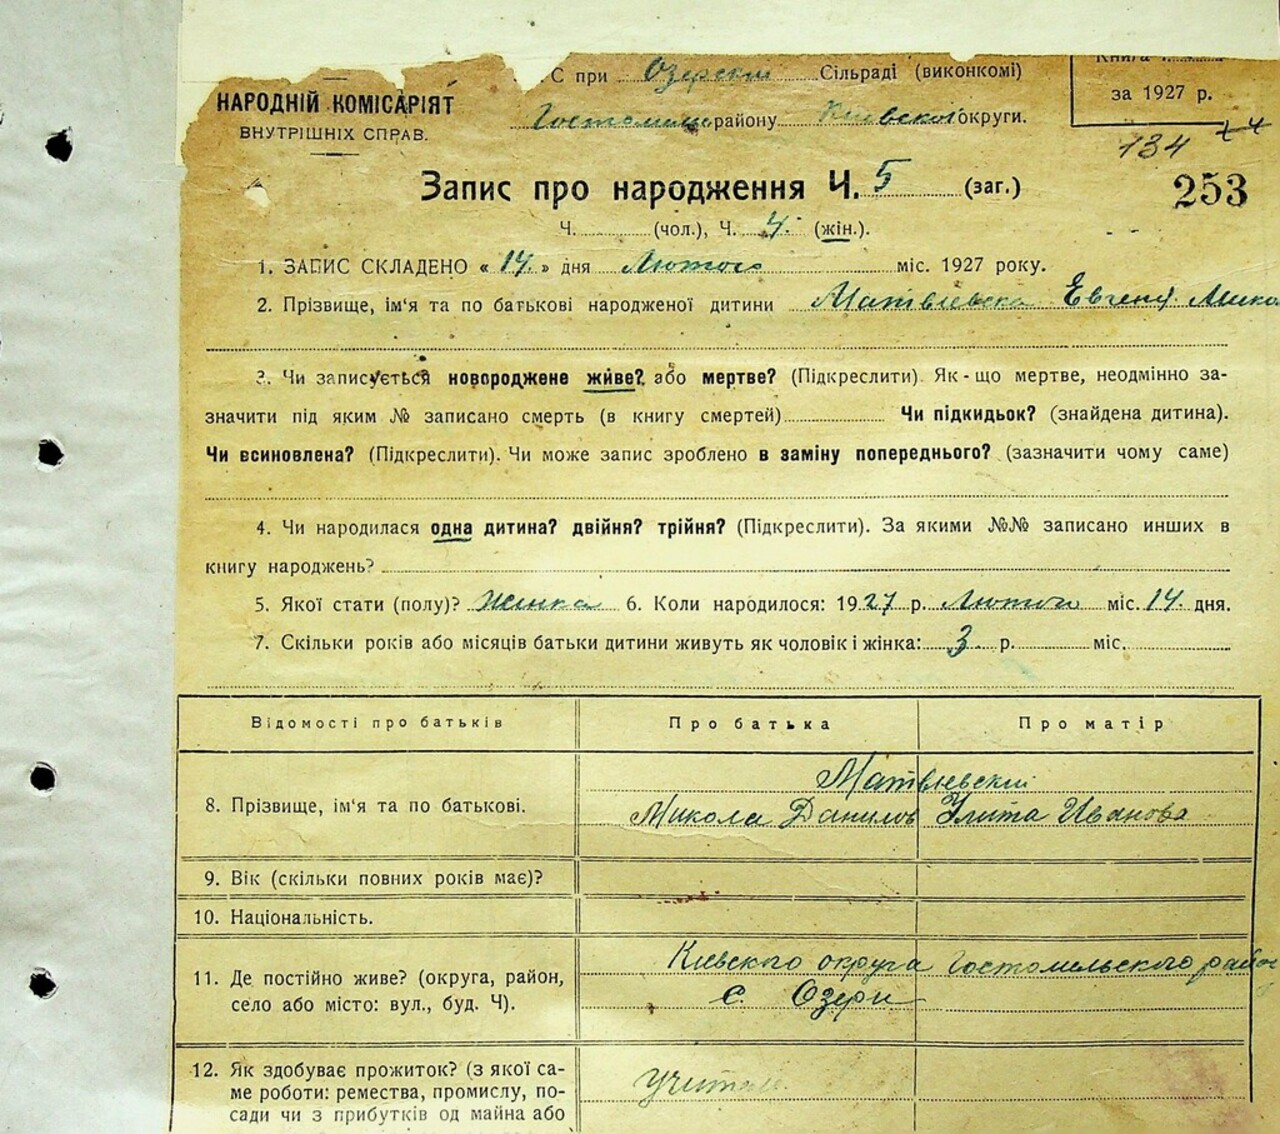 С при Озерскій Сільраді (виконкомі)
НАРОДНІЙ КОМІСАРІЯТ
ВНУТРІШНІХ СПРАВ.
Гостомель району Киевской округи.
Книга
за 1927 р.
134
253
Запис про народження Ч. 5 (заг.)
Ч. (чол.), Ч. 4. (жін.).
1. ЗАПИС СКЛАДЕНО « 14. » дня Лютого міс. 1927 року.
2. Прізвище, ім'я та по батькові народженої дитини Матвіевска Евгенія Мико
3. Чи записується новороджене живе? або мертве? (Підкреслити). Як-що мертве, неодмінно за-
значити під яким № записано смерть (в книгу смертей) Чи підкидьок? (знайдена дитина).
Чи всиновлена? (Підкреслити). Чи може запис зроблено в заміну попереднього? (зазначити чому саме)
4. Чи народилася одна дитина? двійня? трійня? (Підкреслити). За якими №№ записано инших в
книгу народжень?
5. Якої стати (полу)? Жінка 6. Коли народилося: 1927 р. Лютого міс. 14. дня.
7. Скільки років або місяців батьки дитини живуть як чоловік і жінка: 3 р. міс.
Відомості про батьків Про батька Про матір
Матвіевский
8. Прізвище, ім'я та по батькові. Микола Данилов Улита Иванова
9. Вік (скільки повних років має)?
10. Національність.
Киевского округа Гостомельского район
11. Де постійно живе? (округа, район,
село або місто: вул., буд. Ч). с. Озери
12. Як здобуває прожиток? (з якої са-
ме роботи: ремества, промислу, по- учитель
сади чи з прибутків од майна або